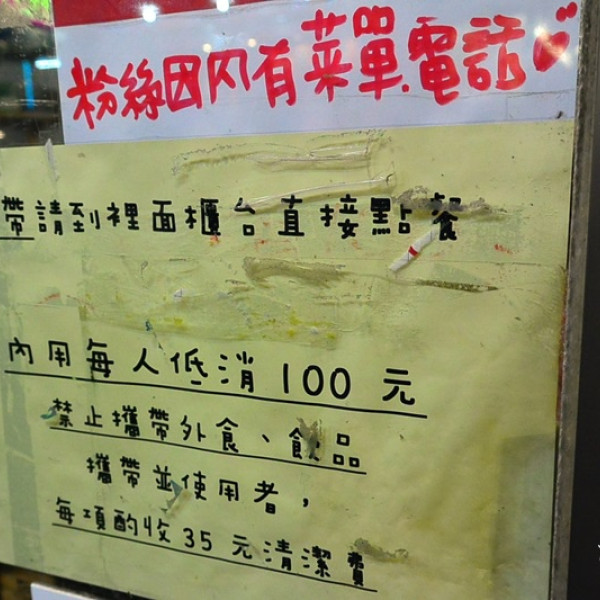 粉絲因內有菜單.電話
帶請到裡面櫃台直接點餐
內用每人低消100元
禁止攜帶外食、飲品
攜帶並使用者，
每項酌收35元清潔費